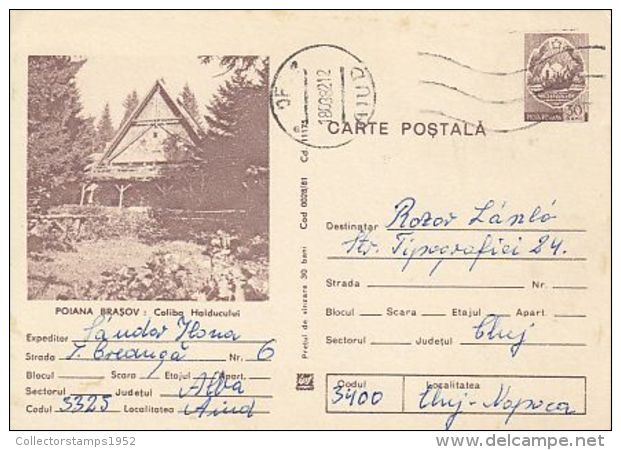 CARTE POȘTALĂ
POȘTA ROMÂNĂ
50
AIUD
180382 12
Prețul de vînzare 30 bani Cod 0028/81 Cd. 11175
POIANA BRAȘOV : Coliba Haiducului
Expeditor Sándor Ilona
Strada I. Creangă Nr. 6
Blocul Scara Etajul Apart.
Sectorul Județul Alba
Codul 3325 Localitatea Aiud
Destinatar Rozov László
Str. Tipografiei 24.
Strada Nr.
Blocul Scara Etajul Apart.
Sectorul Județul Cluj
Codul Localitatea
3400 Cluj-Napoca
Collectorstamps1952
delcampe.net